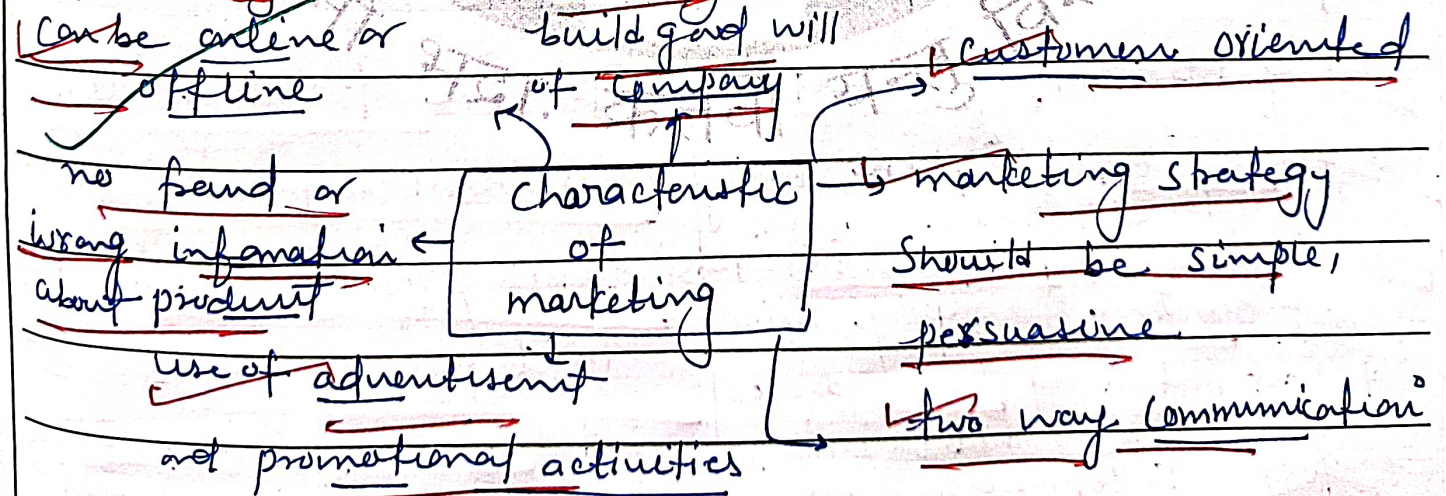 can be online or
offline
build good will
of company
customer oriented
no fraud or
wrong infomation
about product
characteristic
of
marketing
marketing strategy
Should be simple,
persuasive
use of advertisemt
and promotional activities
two way communication